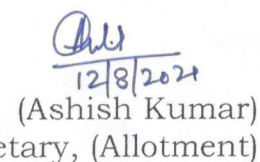 12/8/2021
(Ashish Kumar)
etary, (Allotment)